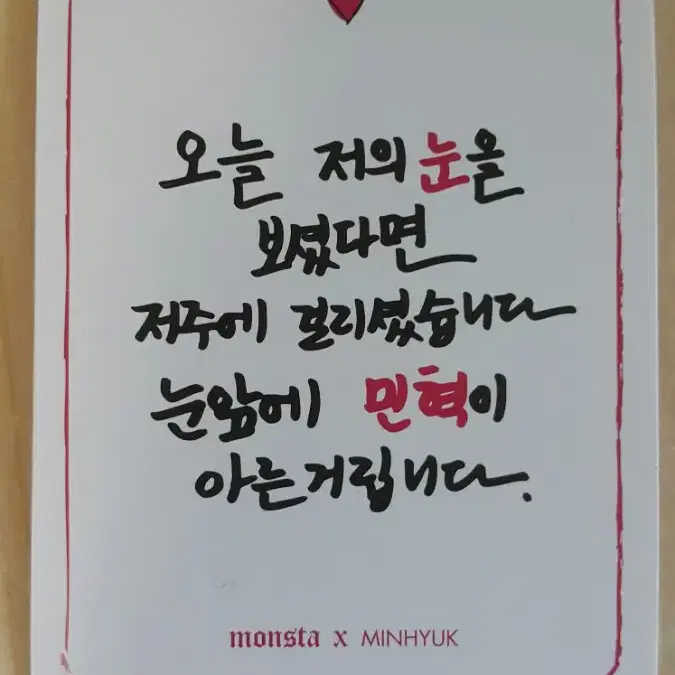 오늘 저의 눈을
보셨다면
저주에 걸리셨습니다
눈앞에 민혁이
아른거립니다.
monsta x MINHYUK